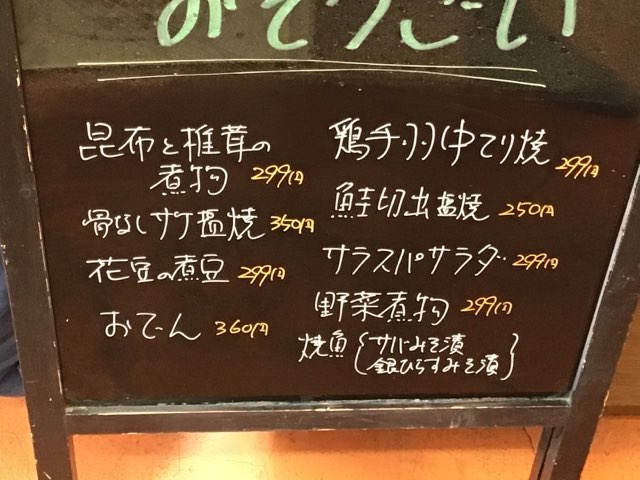 昆布と椎茸の
煮物 299円
骨なしサケ塩焼 350円
花豆の煮豆 299円
おでん 360円
鶏手羽中てり焼 299円
鮭切出塩焼 250円
サラスパサラダ 299円
野菜煮物 299円
焼魚 { サバみそ漬
銀ひらすみそ漬 }